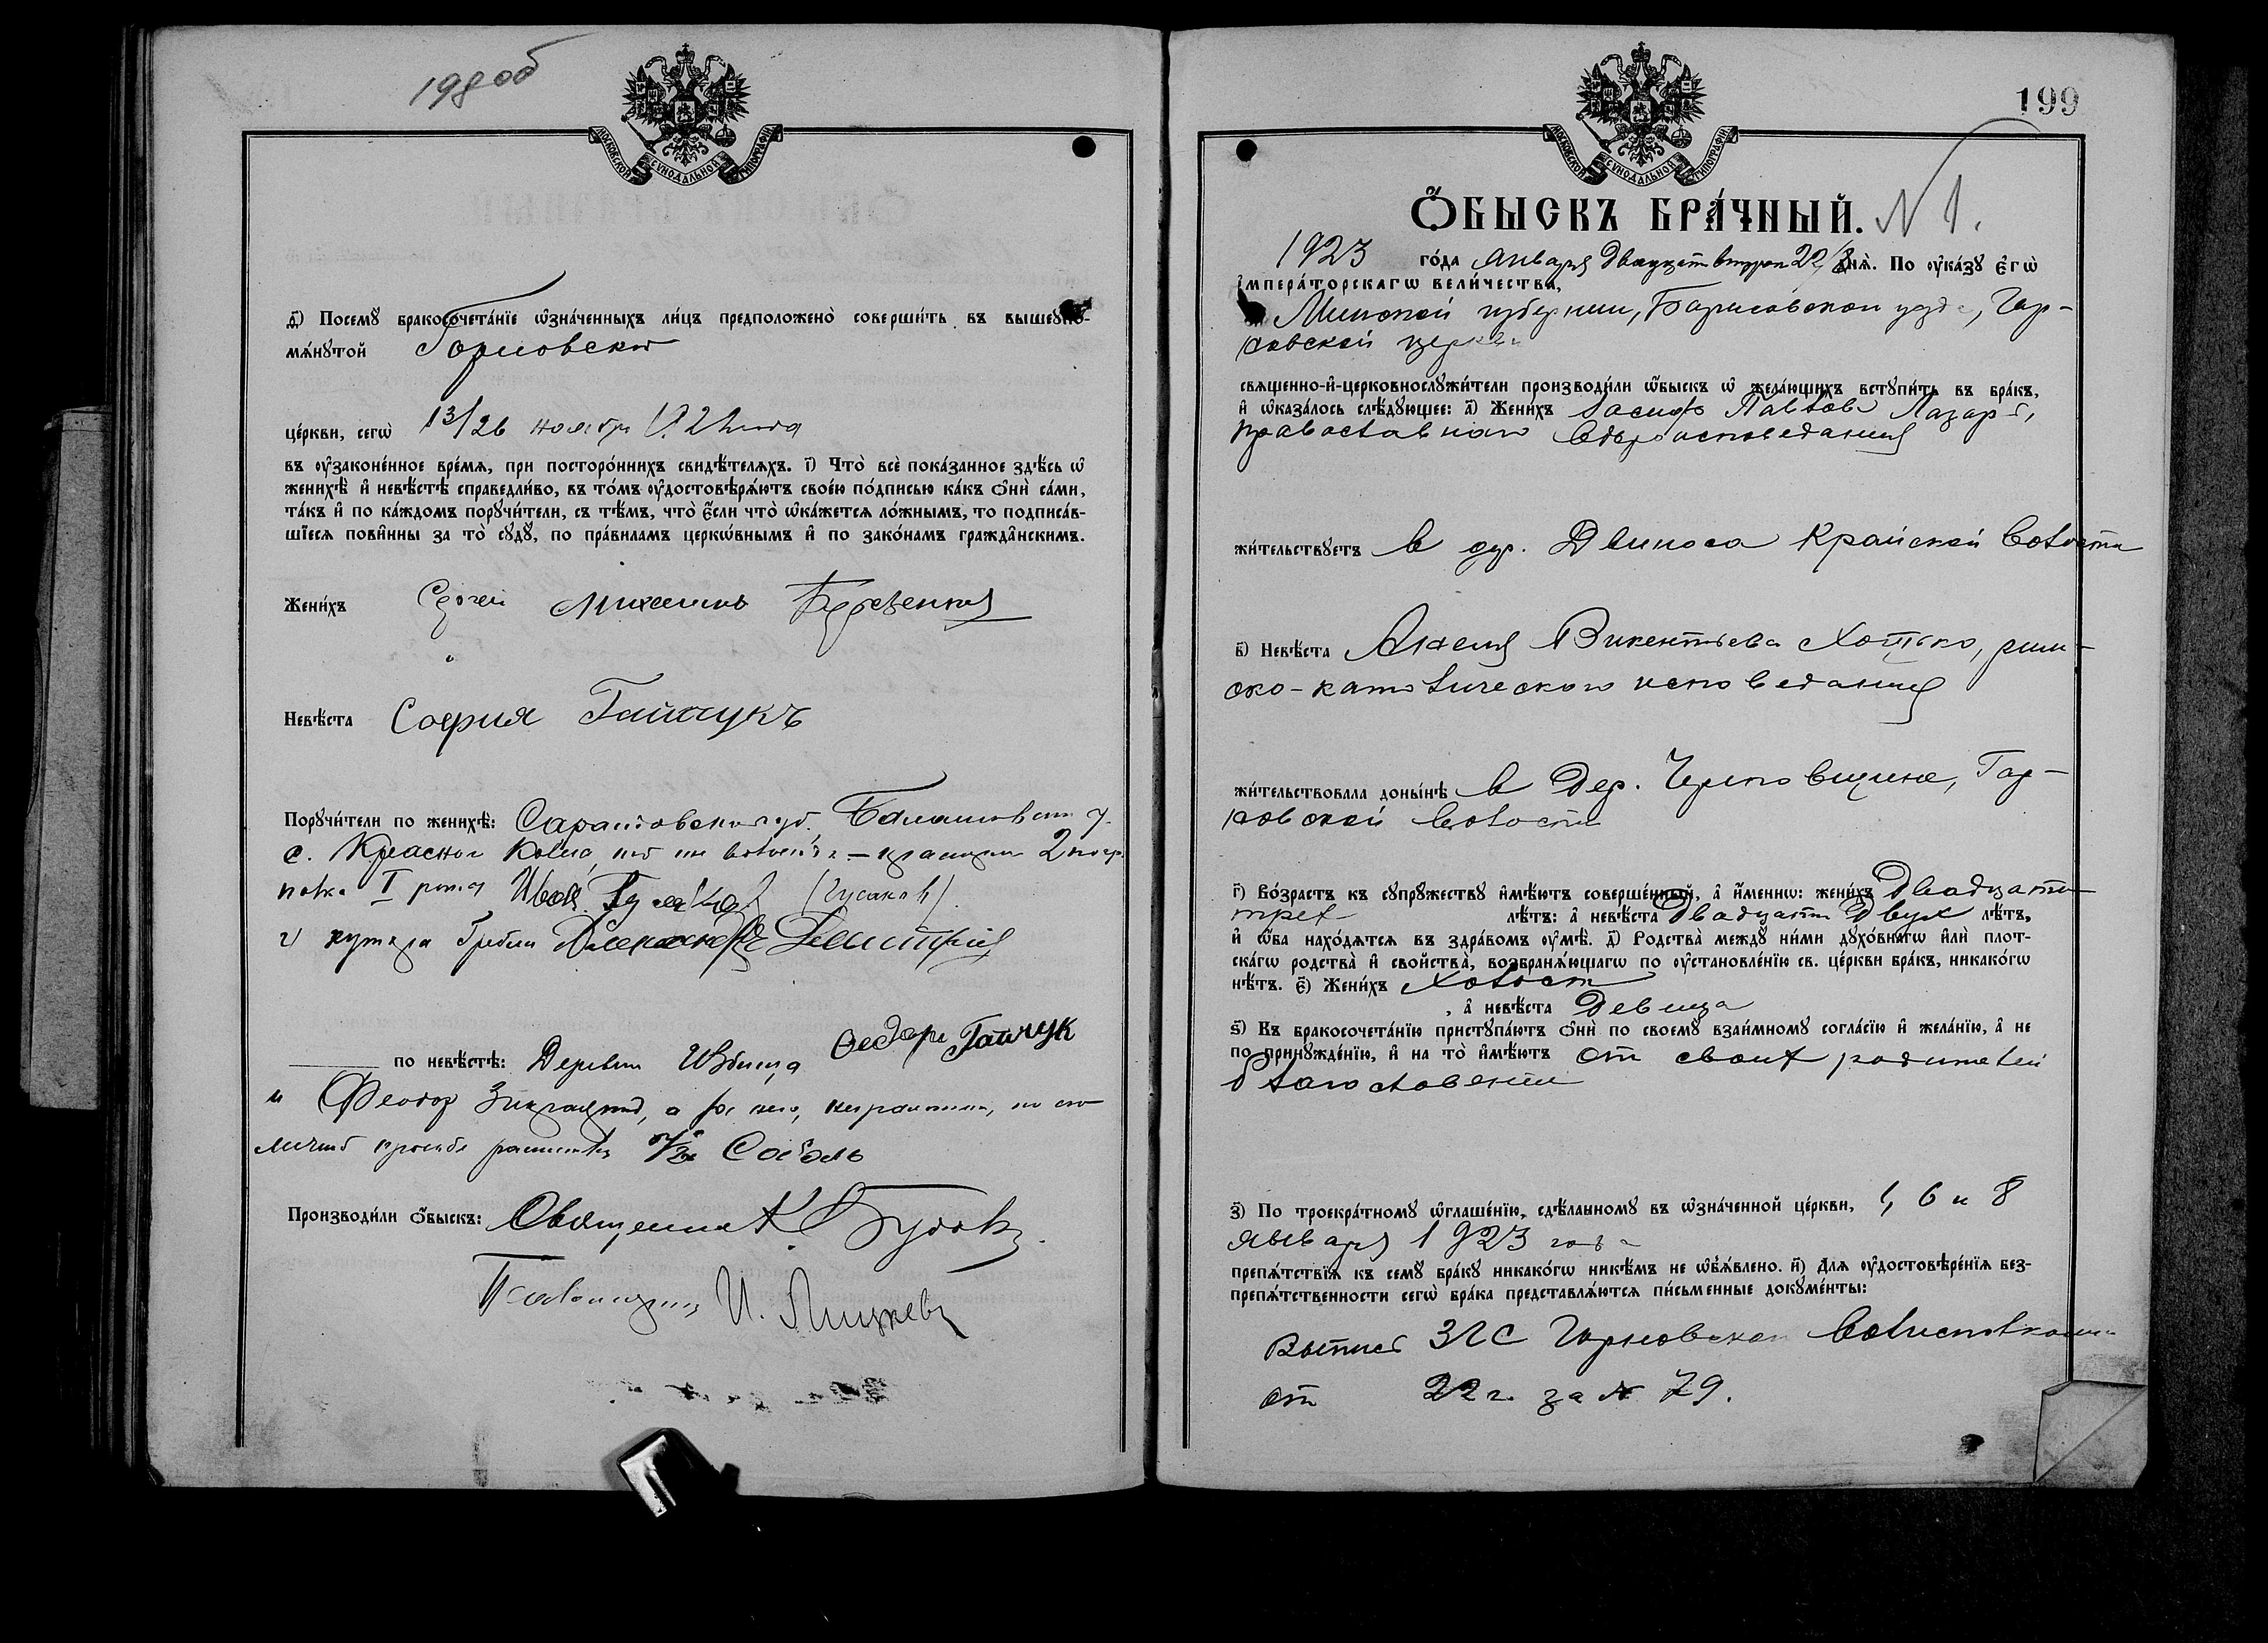 198об
МОСКОВСКОЙ СѴНОДАЛЬНОЙ ТИПОГРАФІИ
д҃) Посемꙋ̀ бракосочета́нїе ѡ҆зна́ченныхъ ли́цъ предположено̀ соверши́ть въ вышеꙋпо-
мѧ́нꙋтой Горновской
це́ркви, сегѡ̀ 13/26 ноября 1921 года
въ ᲂу҆законе́нное вре́мѧ, при посторо́ннихъ свидѣ́телѧхъ. і҃) Что̀ всѐ пока́занное здѣ́сь ѡ҆
женихѣ̀ и҆ невѣ́стѣ справедли́во, въ то́мъ ᲂу҆достовѣрѧ́ютъ свое́ю по́дписью ка́къ ѻ҆нѝ са́ми,
та́къ и҆ по ка́ждомъ порꙋчи́тели, съ тѣ́мъ, что̀ є҆́сли что̀ ѡ҆ка́жетсѧ ло́жнымъ, то подписа́в-
шїесѧ пови́нны за то̀ сꙋдꙋ̀, по пра́виламъ церко́внымъ и҆ по зако́намъ гражда́нскимъ.
Жени́хъ Сергей Михаилов
Невѣ́ста София Гайчукъ
Порꙋчи́тели по женихѣ̀: Саратовской губ. Балашовск у.
с. Красное Колено, волости – 2 погр.
полка I роты Иван Гусаков (Гусаков).
2) хутора Гребли Александр Дмитрий
по невѣ́стѣ: Деревни Избища Феодоръ Гайчук
и Феодор, а за него, неграмотн, по его
личной просьбе расписался Соболь
Производи́ли ѻ҆́быскъ: Священник
Псаломщик И. Лицкевич
199
МОСКОВСКОЙ СѴНОДАЛЬНОЙ ТИПОГРАФІИ
Ѻ҆́БЫСКЪ БРА́ЧНЫЙ. N 1.
1923 го́да января двадцать второго 22/ днѧ̀. По ᲂу҆ка́зꙋ є҆гѡ̀
и҆мпера́торскагѡ вели́чества,
Минской губернии, Борисовской уезда, Гор-
новской церкви
свѧщенно-и҆-церковнослꙋжи́тели производи́ли ѻ҆́быскъ ѡ҆ жела́ющихъ встꙋпи́ть въ бра́къ,
и҆ ѡ҆каза́лось слѣ́дꙋющее: а҃) Жени́хъ Iосиф Павлов Лазар,
православного вероисповедания
жи́тельствꙋетъ в дер. Двиноса Крайской волости
в҃) Невѣ́ста Анеля Викентьева Хотько, рим-
ско-католического исповедания
жи́тельствовала доны́нѣ в дер. Черновщине, Гор-
новской волости
г҃) Во́зрастъ къ сꙋпрꙋ́жествꙋ и҆мѣ́ютъ соверше́нный, а҆ и҆́меннѡ: жени́хъ Двадцати
трех лѣ́тъ: а҆ невѣ́ста Двадцати Двух лѣ́тъ,
и҆ ѻ҆́ба нахо́дѧтсѧ въ здра́вомъ ᲂу҆мѣ̀. д҃) Родства̀ междꙋ̀ ни́ми дꙋхо́внагѡ и҆лѝ плот-
ска́гѡ родства̀ и҆ сво́йства, возбранѧ́ющагѡ по ᲂу҆становле́нїю св. це́ркви бра́къ, никако́гѡ
нѣ́тъ. є҃) Жени́хъ Холост
, а҆ невѣ́ста Девица
ѕ҃) Къ бракосочета́нїю пристꙋпа́ютъ ѻ҆нѝ по своемꙋ̀ взаи́мномꙋ согла́сїю и҆ жела́нїю, а҆ не
по принꙋжде́нїю, и҆ на то̀ и҆мѣ́ютъ от своих родителей
благословение
з҃) По троекра́тномꙋ ѡ҆глаше́нїю, сдѣ́ланномꙋ въ ѡ҆зна́ченной це́ркви, 1, 6 и 8
января 1923 года
препѧ́тствїѧ къ семꙋ̀ бра́кꙋ никако́гѡ никѣ́мъ не ѡ҆б̾ѧ́влено. и҃) Длѧ ᲂу҆достовѣре́нїѧ без-
препѧ́тственности сегѡ̀ бра́ка представлѧ́ютсѧ пи́сьменные докꙋме́нты:
Выпись ЗАГС Горновской волисполкома
от 22 г. за № 79.